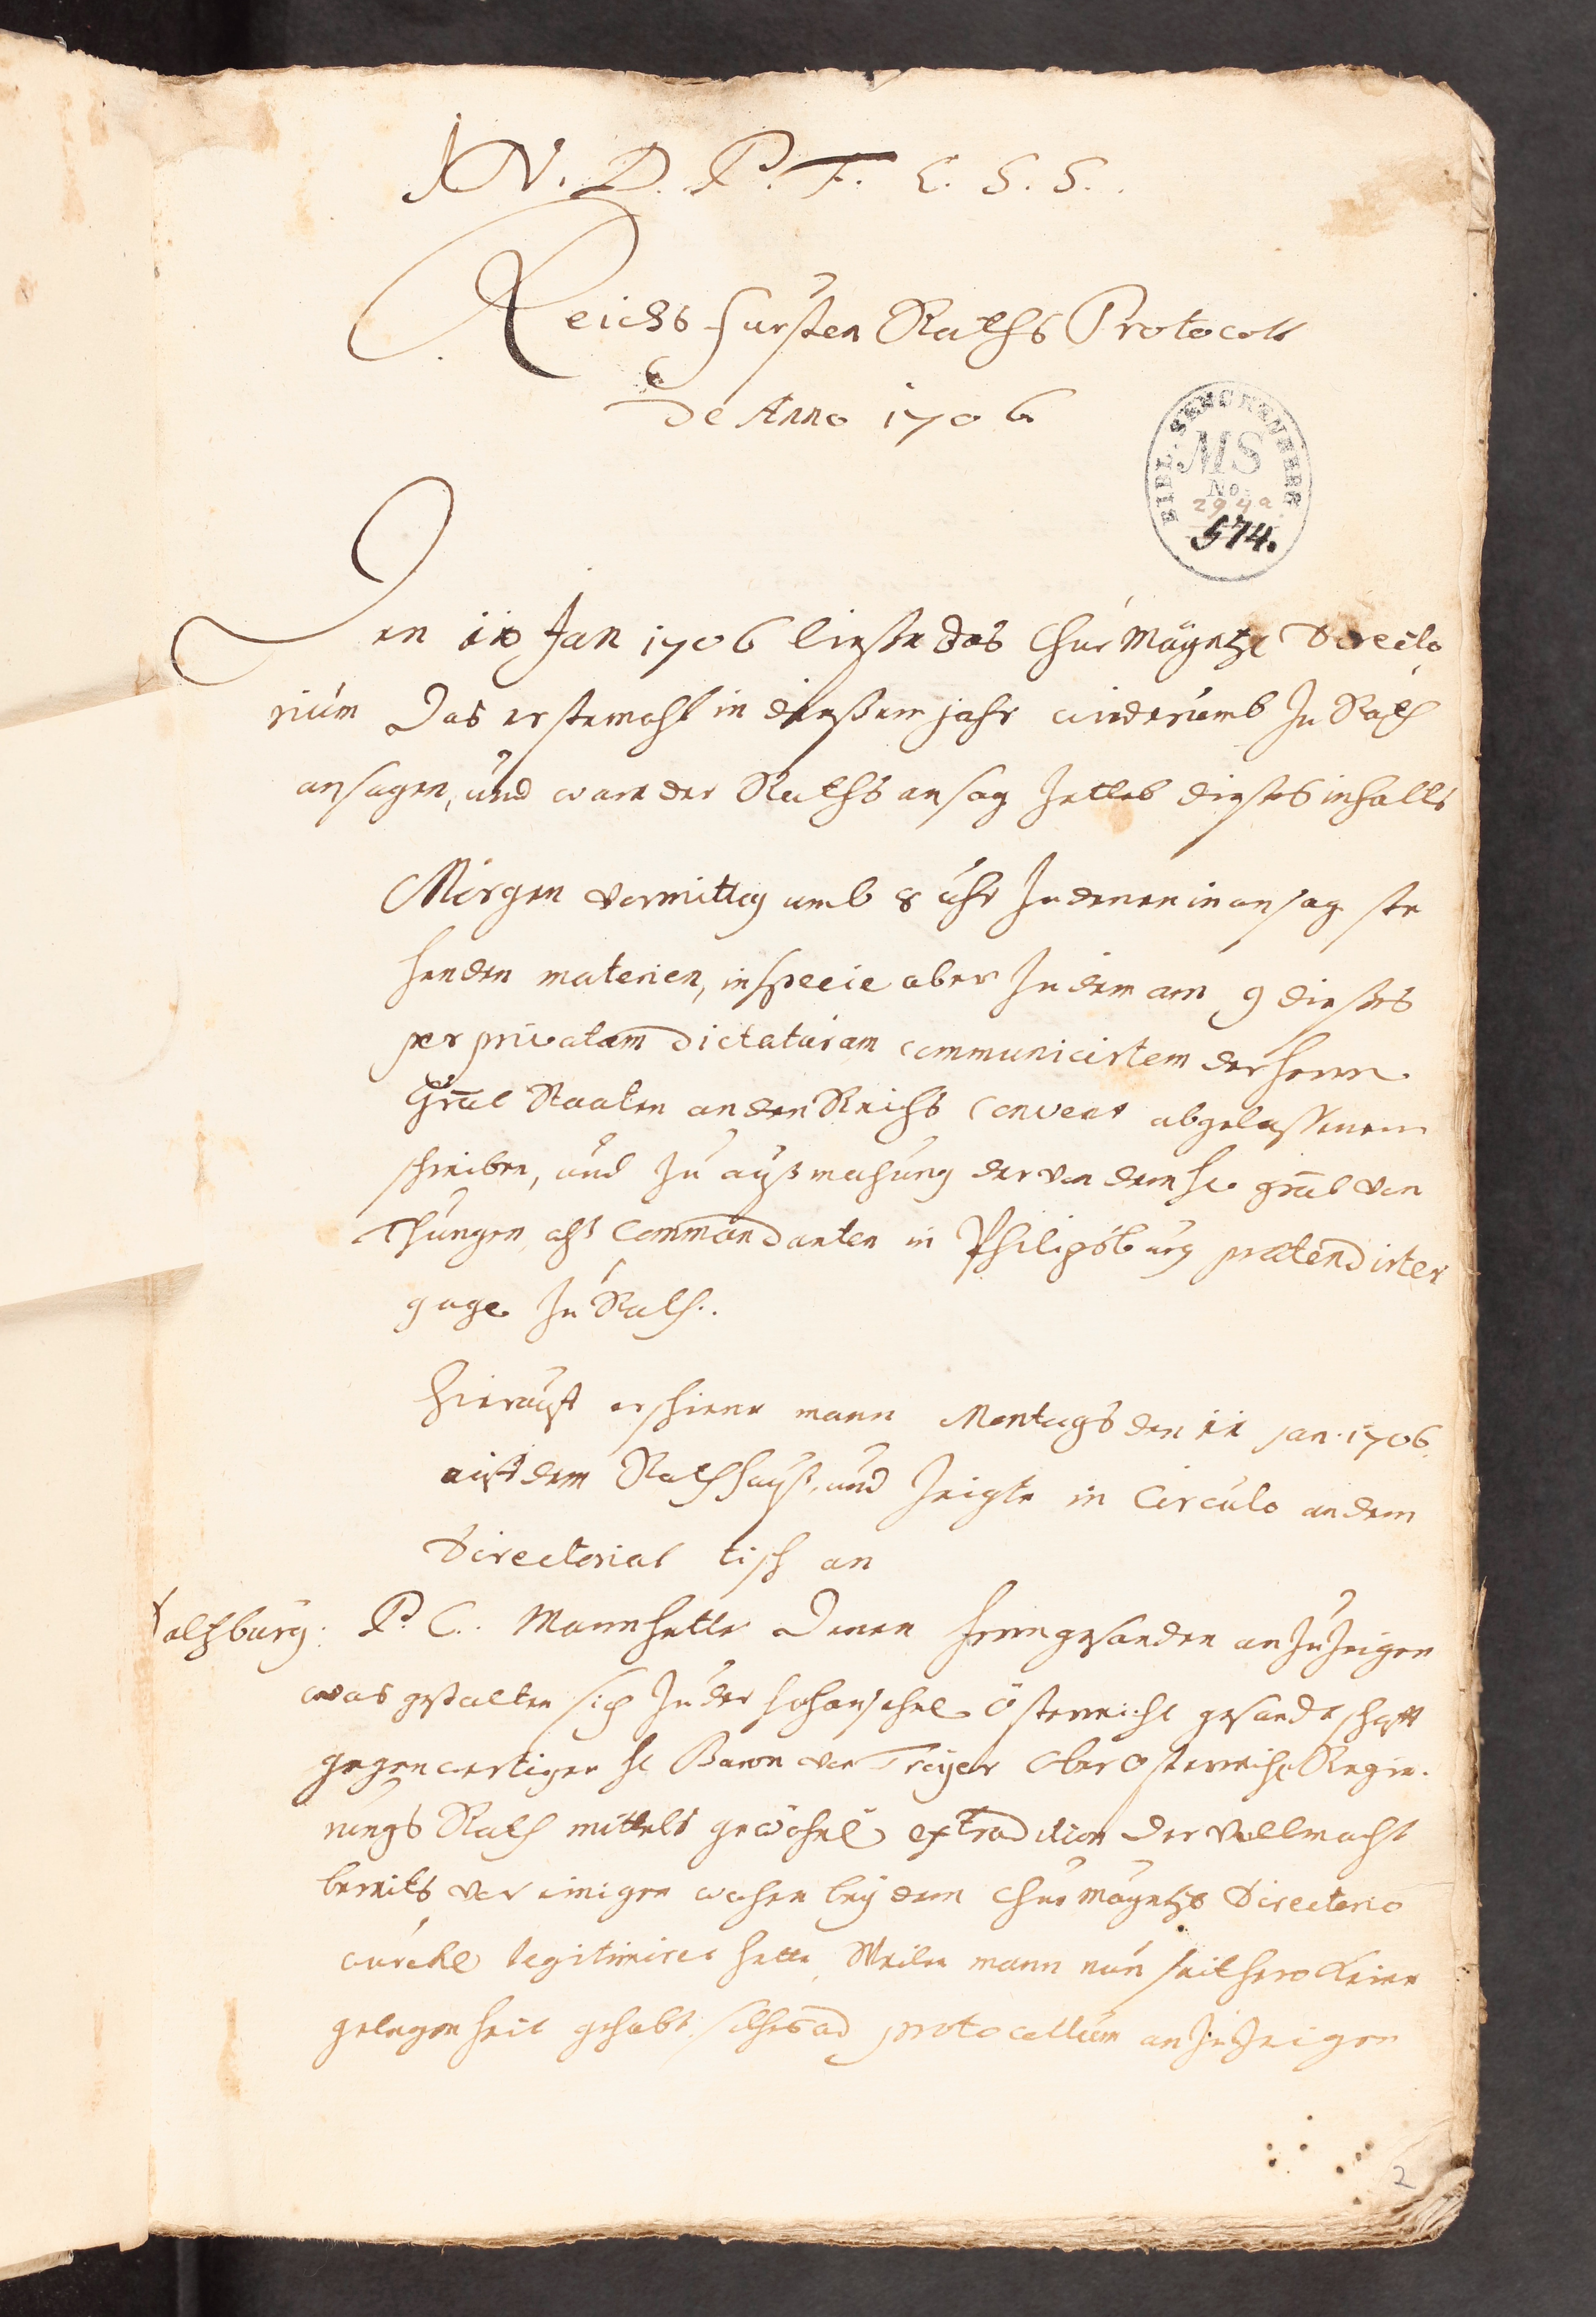 J N. D. P. F. E. S. S.
Reichs Fürsten Raths Protocoll
De Anno 1706
BIBL. SENCKENBERG
MS
No.
294a
574.
Den 10 Jan 1706 ließe das Chur Mayntz. Directo
rium das erstemahl in dießem jahr widerumb zu Rath
ansagen, und ware der Raths ansag zettel dießes inhalts
Morgen vormittag umb 8 uhr zu denen in ansag ste
henden materien, in specie aber zu dem am 9 dießes
per privatam dictaturam communicirtem der herrn
Gnāl Staaten an den Reichs Convent abgelaßenem
schreiben, und zu außmachung der von dem H. gnāl von
Thüngen alß Commandanten in Philipsburg praetendirter
gage zu Rath.
Hierauff erschiene mann Montags den 11 Jan. 1706.
auff dem Rathhauß, und zeigte in Circulo an dem
Directorial tisch an
Saltzburg: P. C. Mann hette denen herrn gesanden anzuzeigen
was gestalten sich zu der hochansehnl. Österreich. gesandschafft
gegenwertiger H. Baron von Troyer ober Osterreich. Regie-
rungs Rath mittels gewöhnl. extradition der vollmacht
bereits vor einigen wochen bey dem Chur Mayntz. Directorio
würckl. legitimiret hette, Weilen mann nun seithero keine
gelegenheit gehabt, solches ad protocollum anzuzeigen
2